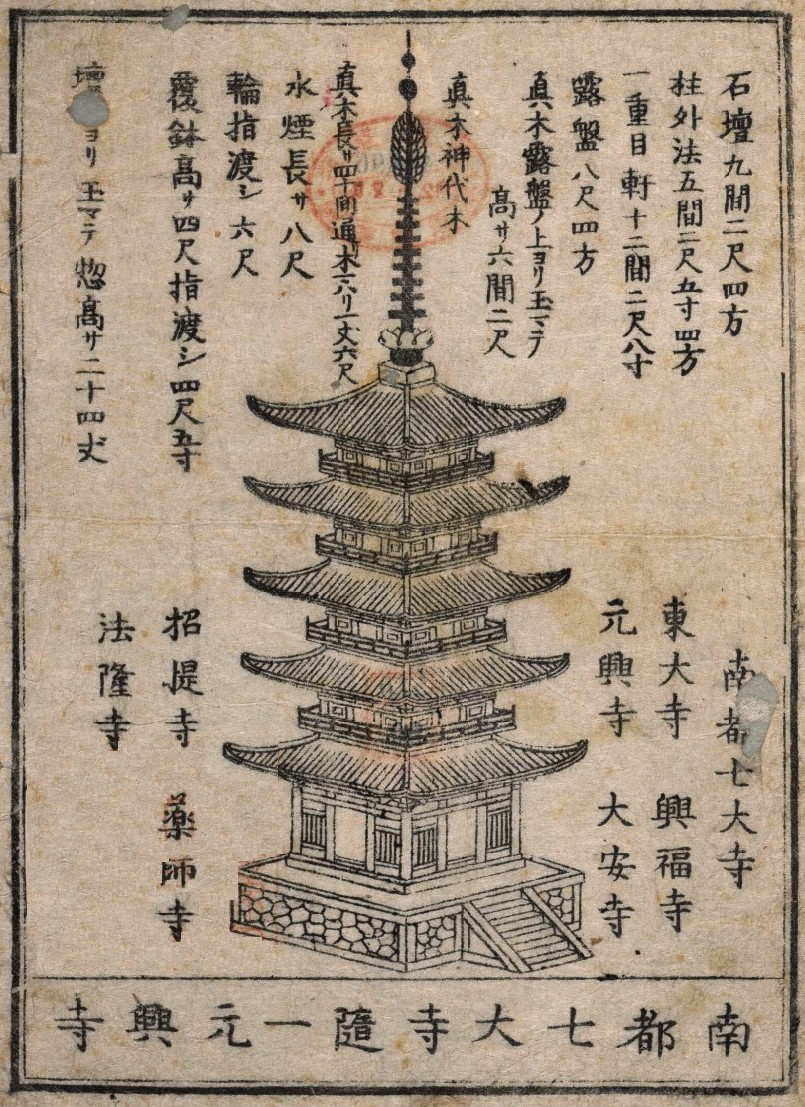 石壇九間二尺四方
柱外法五間二尺五寸四方
一重目軒十二間二尺八寸
露盤八尺四方
真木露盤ノ上ヨリ玉マテ
高サ六間二尺
真木神代木
真木長サ四十間通木六ハリ一丈六尺
水煙長サ八尺
輪指渡シ六尺
覆鉢高サ四尺指渡シ四尺五寸
壇ヨリ玉マテ惣高サ二十四丈
南都七大寺
東大寺 興福寺
元興寺 大安寺
招提寺 薬師寺
法隆寺
南都七大寺随一元興寺